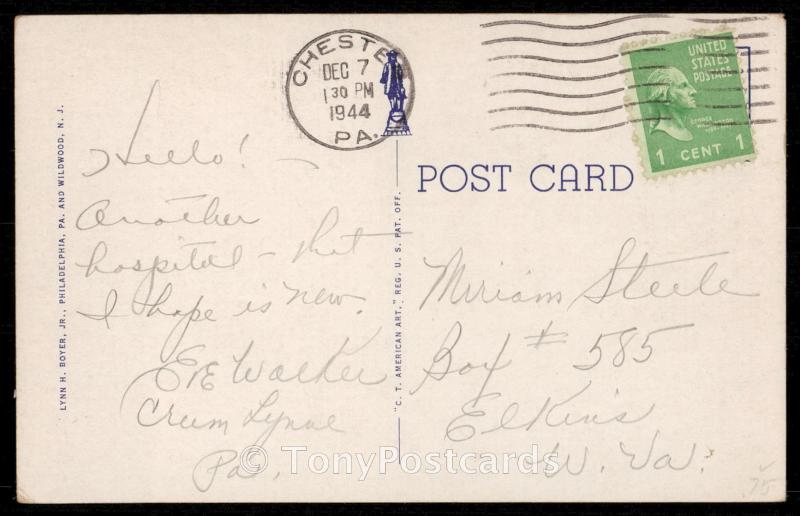 CHESTER
DEC 7
1 30 PM
1944
PA.
UNITED
STATES
POSTAGE
1 CENT 1
POST CARD
Hello! –
Another
hospital – that
I hope is new.
Eve Walker
Crum Lynne
Pa.
Miriam Steele
Box # 585
Elkins
W. Va.
LYNN H. BOYER, JR., PHILADELPHIA, PA. AND WILDWOOD, N. J.
"C. T. AMERICAN ART," REG. U. S. PAT. OFF.
© TonyPostcards
.75